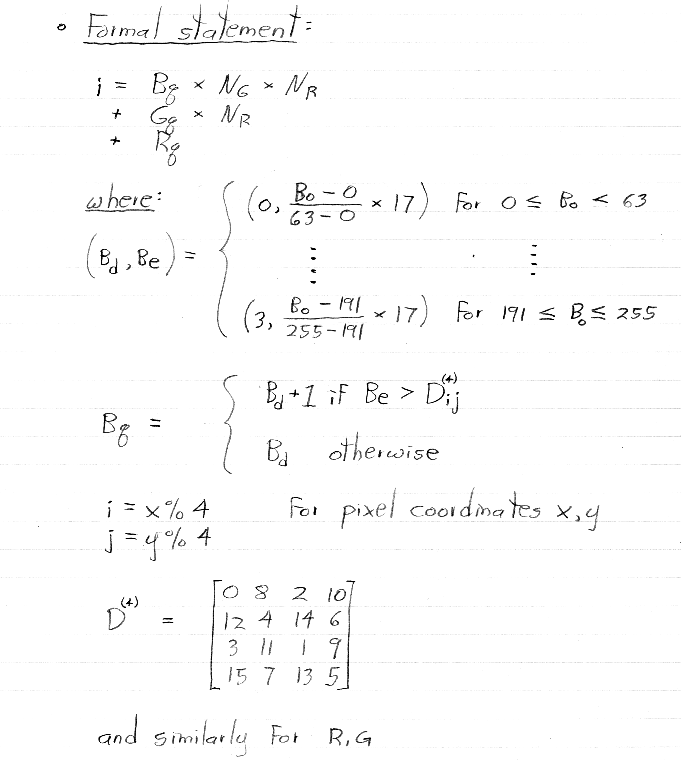 • Formal statement:
i = Bq × NG × NR
+ Gq × NR
+ Rq
where:
(Bd, Be) = { (0, (Bo - 0)/(63 - 0) × 17) For 0 ≤ Bo < 63
⋮ ⋮
(3, (Bo - 191)/(255 - 191) × 17) For 191 ≤ Bo ≤ 255
Bq = { Bd + 1 if Be > Dij(4)
Bd otherwise
i = x % 4 For pixel coordinates x, y
j = y % 4
D(4) = [ 0 8 2 10
12 4 14 6
3 11 1 9
15 7 13 5 ]
and similarly For R, G